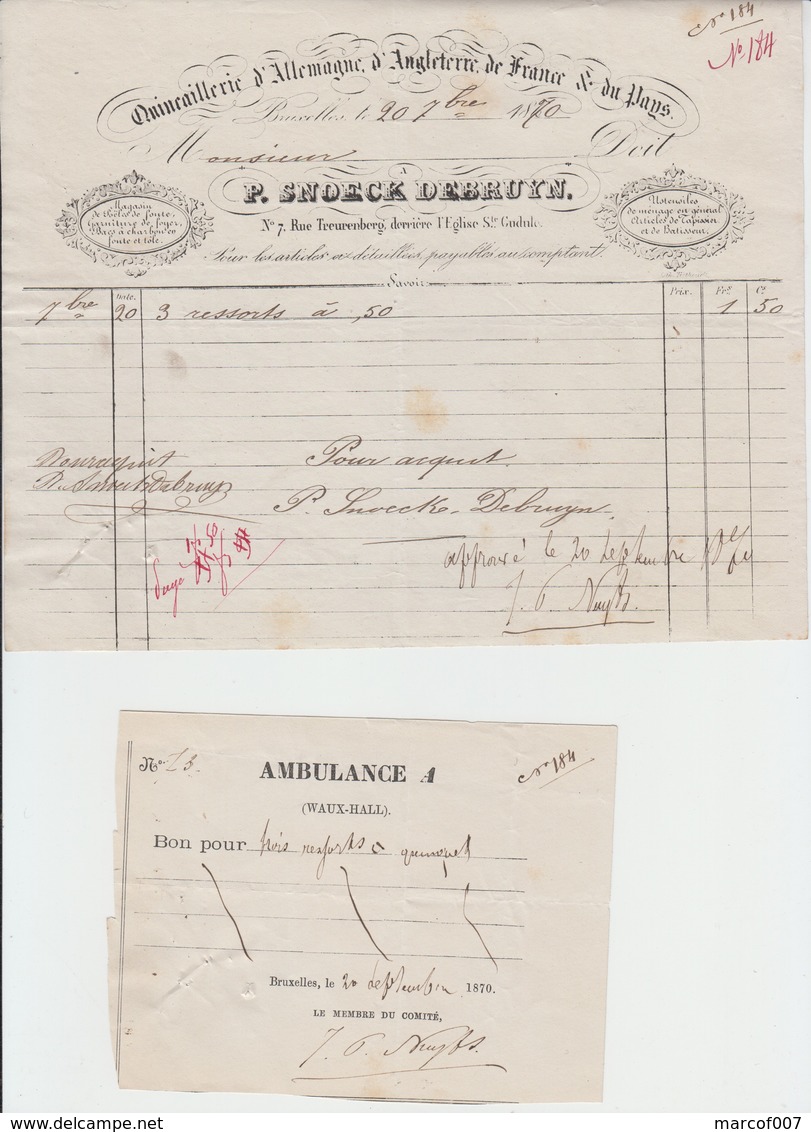 No 184
No 184
Quincaillerie d'Allemagne, d'Angleterre, de France & du Pays.
Bruxelles, le 20 7bre 1870
Monsieur Doit
A
P. SNOECK DEBRUYN.
No 7, Rue Treurenberg, derrière l'Eglise Ste Gudule.
Magasin
de Poëles de fonte,
Garniture de foyer,
Bacs à charbon en
fonte et tôle.
Ustensiles
de ménage en général
Articles de Tapissier
et de Batisseur.
Pour les articles ci-détaillés, payables au comptant.
Savoir
Date. Prix. Frs Cs
7bre 20 3 ressorts à ,50 1 50
Pour acquit
P. Snoeck-Debruyn
Pour acquit.
P. Snoeck-Debruyn.
approuvé le 20 septembre 1870
J. P. Nuyts.
No 13.
AMBULANCE 1
No 184
(WAUX-HALL).
Bon pour trois ressorts à quinquet
Bruxelles, le 20 septembre 1870.
LE MEMBRE DU COMITÉ,
J. P. Nuyts.
marcof007